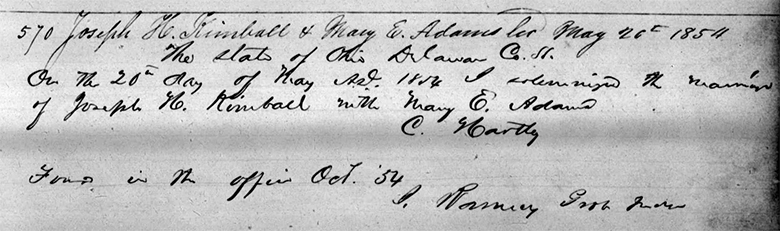 570 Joseph H. Kimball & Mary E. Adams Lic May 20th 1854
The State of Ohio Delaware Co. SS.
On the 20th Day of May AD. 1854 I solemnized the marriage
of Joseph H. Kimball with Mary E. Adams
C. Hartly
in the office Oct. '54
Prob Judge